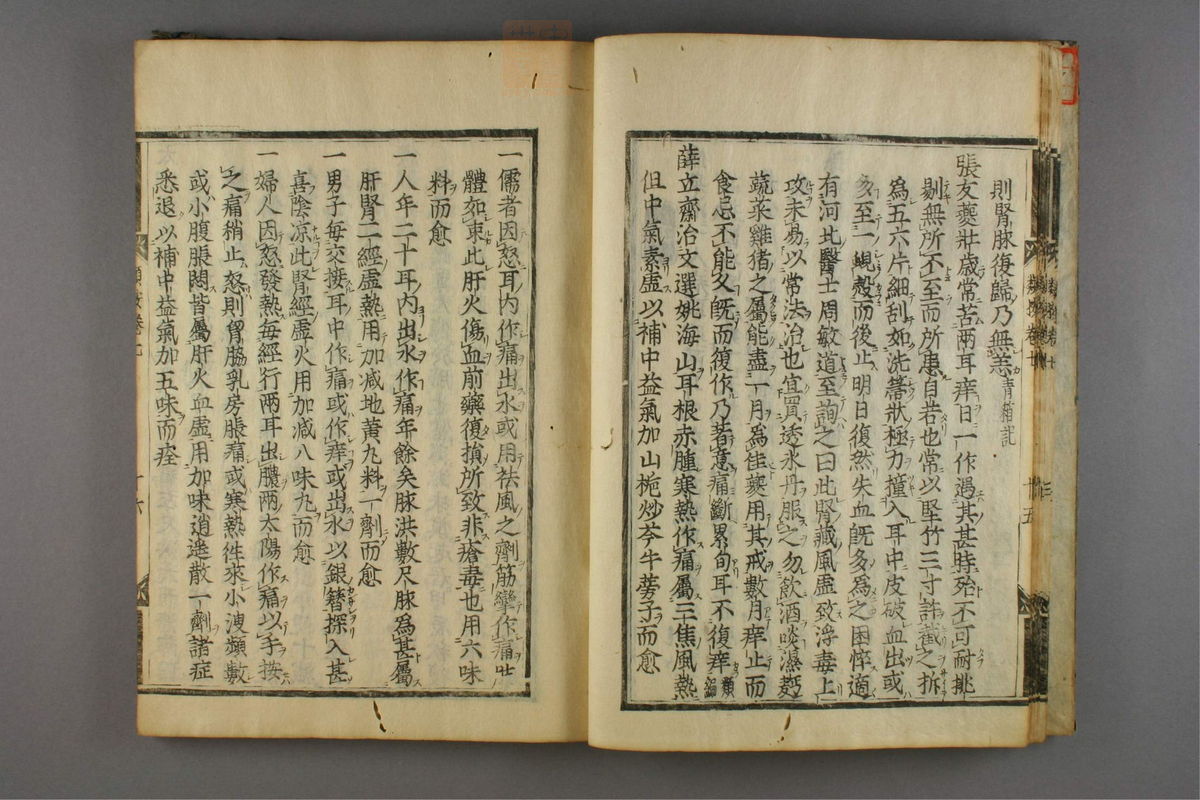 則腎脉復歸乃無恙青箱記
張友夔壯歳常苦兩耳痒日一作遇其甚時殆不可耐挑
剔無所不至而所患自若也常以堅竹三寸許截之拆
為五六片細刮如洗箒狀極力撞入耳中皮破血出或
多至一蜆殻而後止明日復然失血既多為之困悴適
有河北醫士周敏道至詢之曰此腎臓風虚致浮毒上
攻未易以常法治也宜買透氷丹服之勿飲酒啖濕麪
蔬菜雞猪之屬能盡一月為佳夔用其戒數月痒止而
食忌不能久既而復作乃著意痛斷累旬耳不復痒類編
薛立齋治文選姚海山耳根赤腫寒熱作痛屬三焦風熱
但中氣素虚以補中益氣加山梔炒芩牛蒡子而愈
一儒者因怒耳内作痛出水或用祛風之劑筋攣作痛吐
體如束此肝火傷血前藥復損所致非瘡毒也用六味
料而愈
一人年二十耳内出水作痛年餘矣脉洪數尺脉為甚屬
肝腎二經虚熱用加减地黄丸料一劑而愈
一男子毎交接耳中作痛或作痒或出水以銀簪探入甚
喜陰凉此腎經虚火用加减八味丸而愈
一婦人因怒發熱毎經行兩耳出膿兩太陽作痛以手按
之痛稍止怒則胷脇乳房脹痛或寒熱徃來小溲頻數
或小腹脹悶皆屬肝火血虚用加味逍遥散一劑諸症
悉退以補中益氣加五味而痊